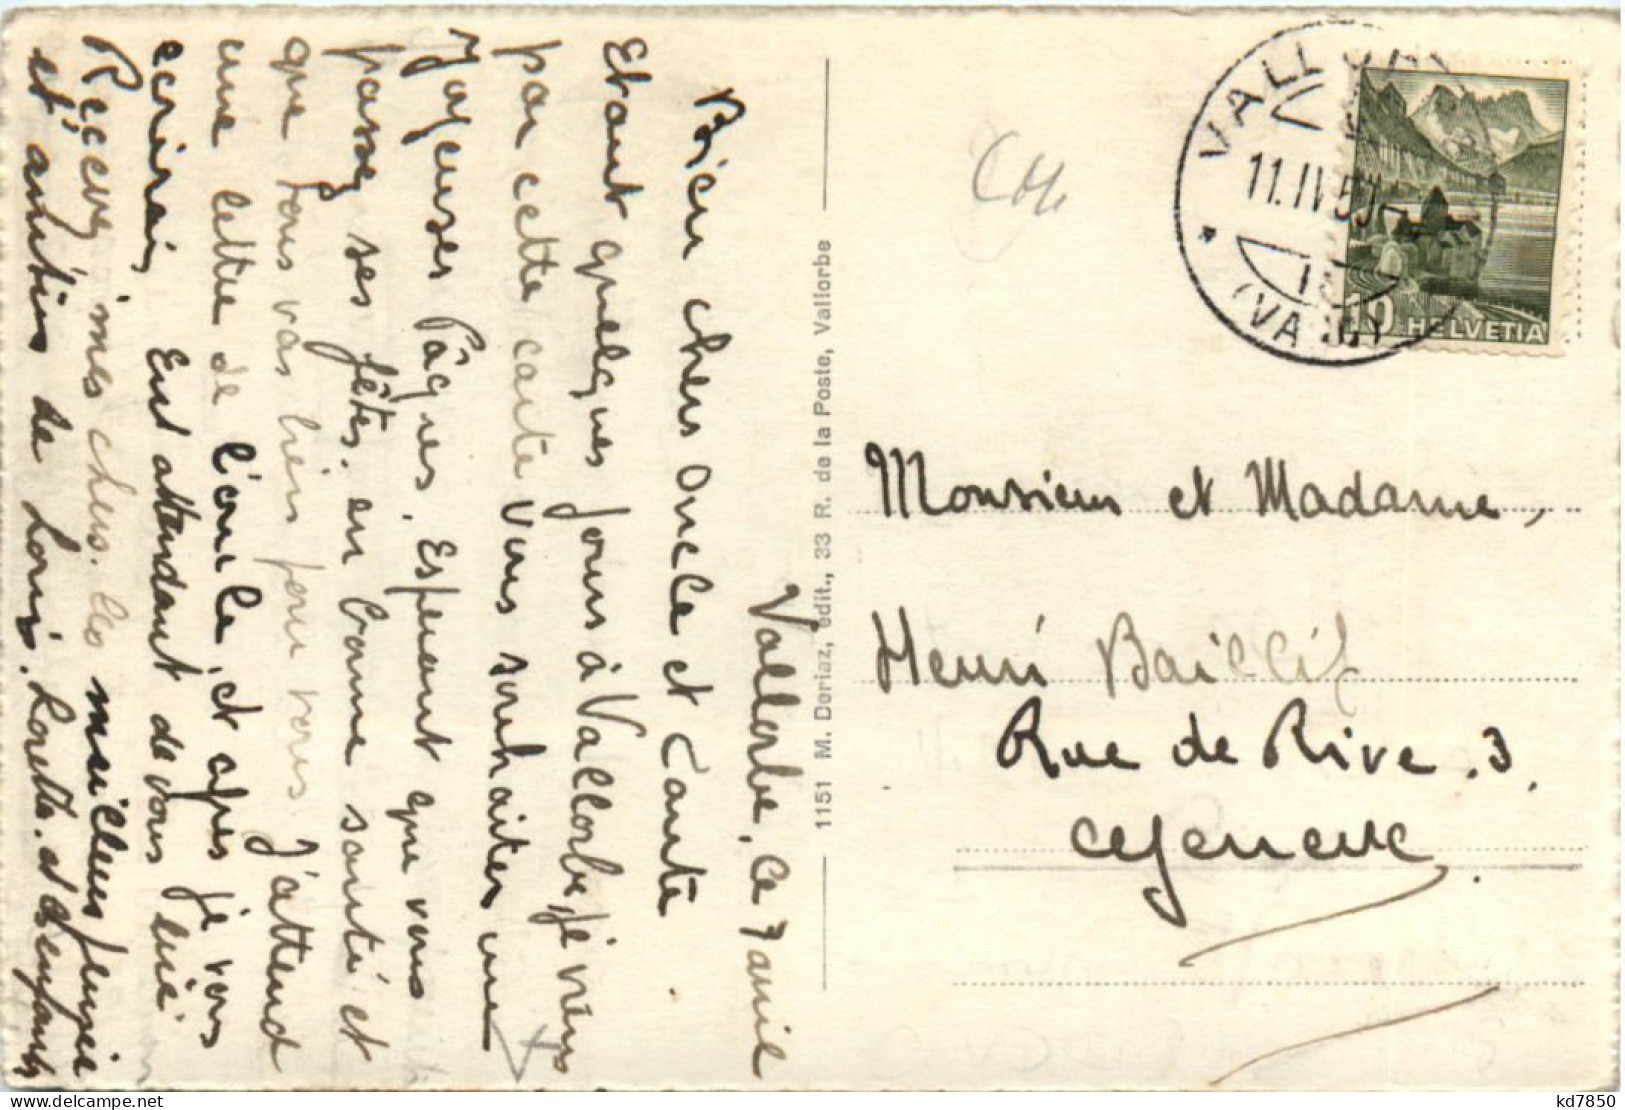 Vallorbe, ce 7 avril
Bien chers oncle et tante
Etant quelques jours à Vallorbe, je viens
par cette carte vous souhaiter une
Joyeuses Pâques. Espérant que vous
passez ses fêtes en bonne santé et
que tous vas bien pour vous. J'attend
une lettre de l'oncle, et après je vous
ecrirai, Ent attendant de vous lire
Recevez mes chers. les meilleurs pensée
et amitiés de Louis. Lorette. et d'enfants
1151 M. Deriaz, édit., 33 R. de la Poste, Vallorbe
VALLORBE
11.IV.50
(VAUD)
10 HELVETIA
Monsieur et Madame,
Henri Baillif
Rue de Rive. 3,
Genève.
kd7850